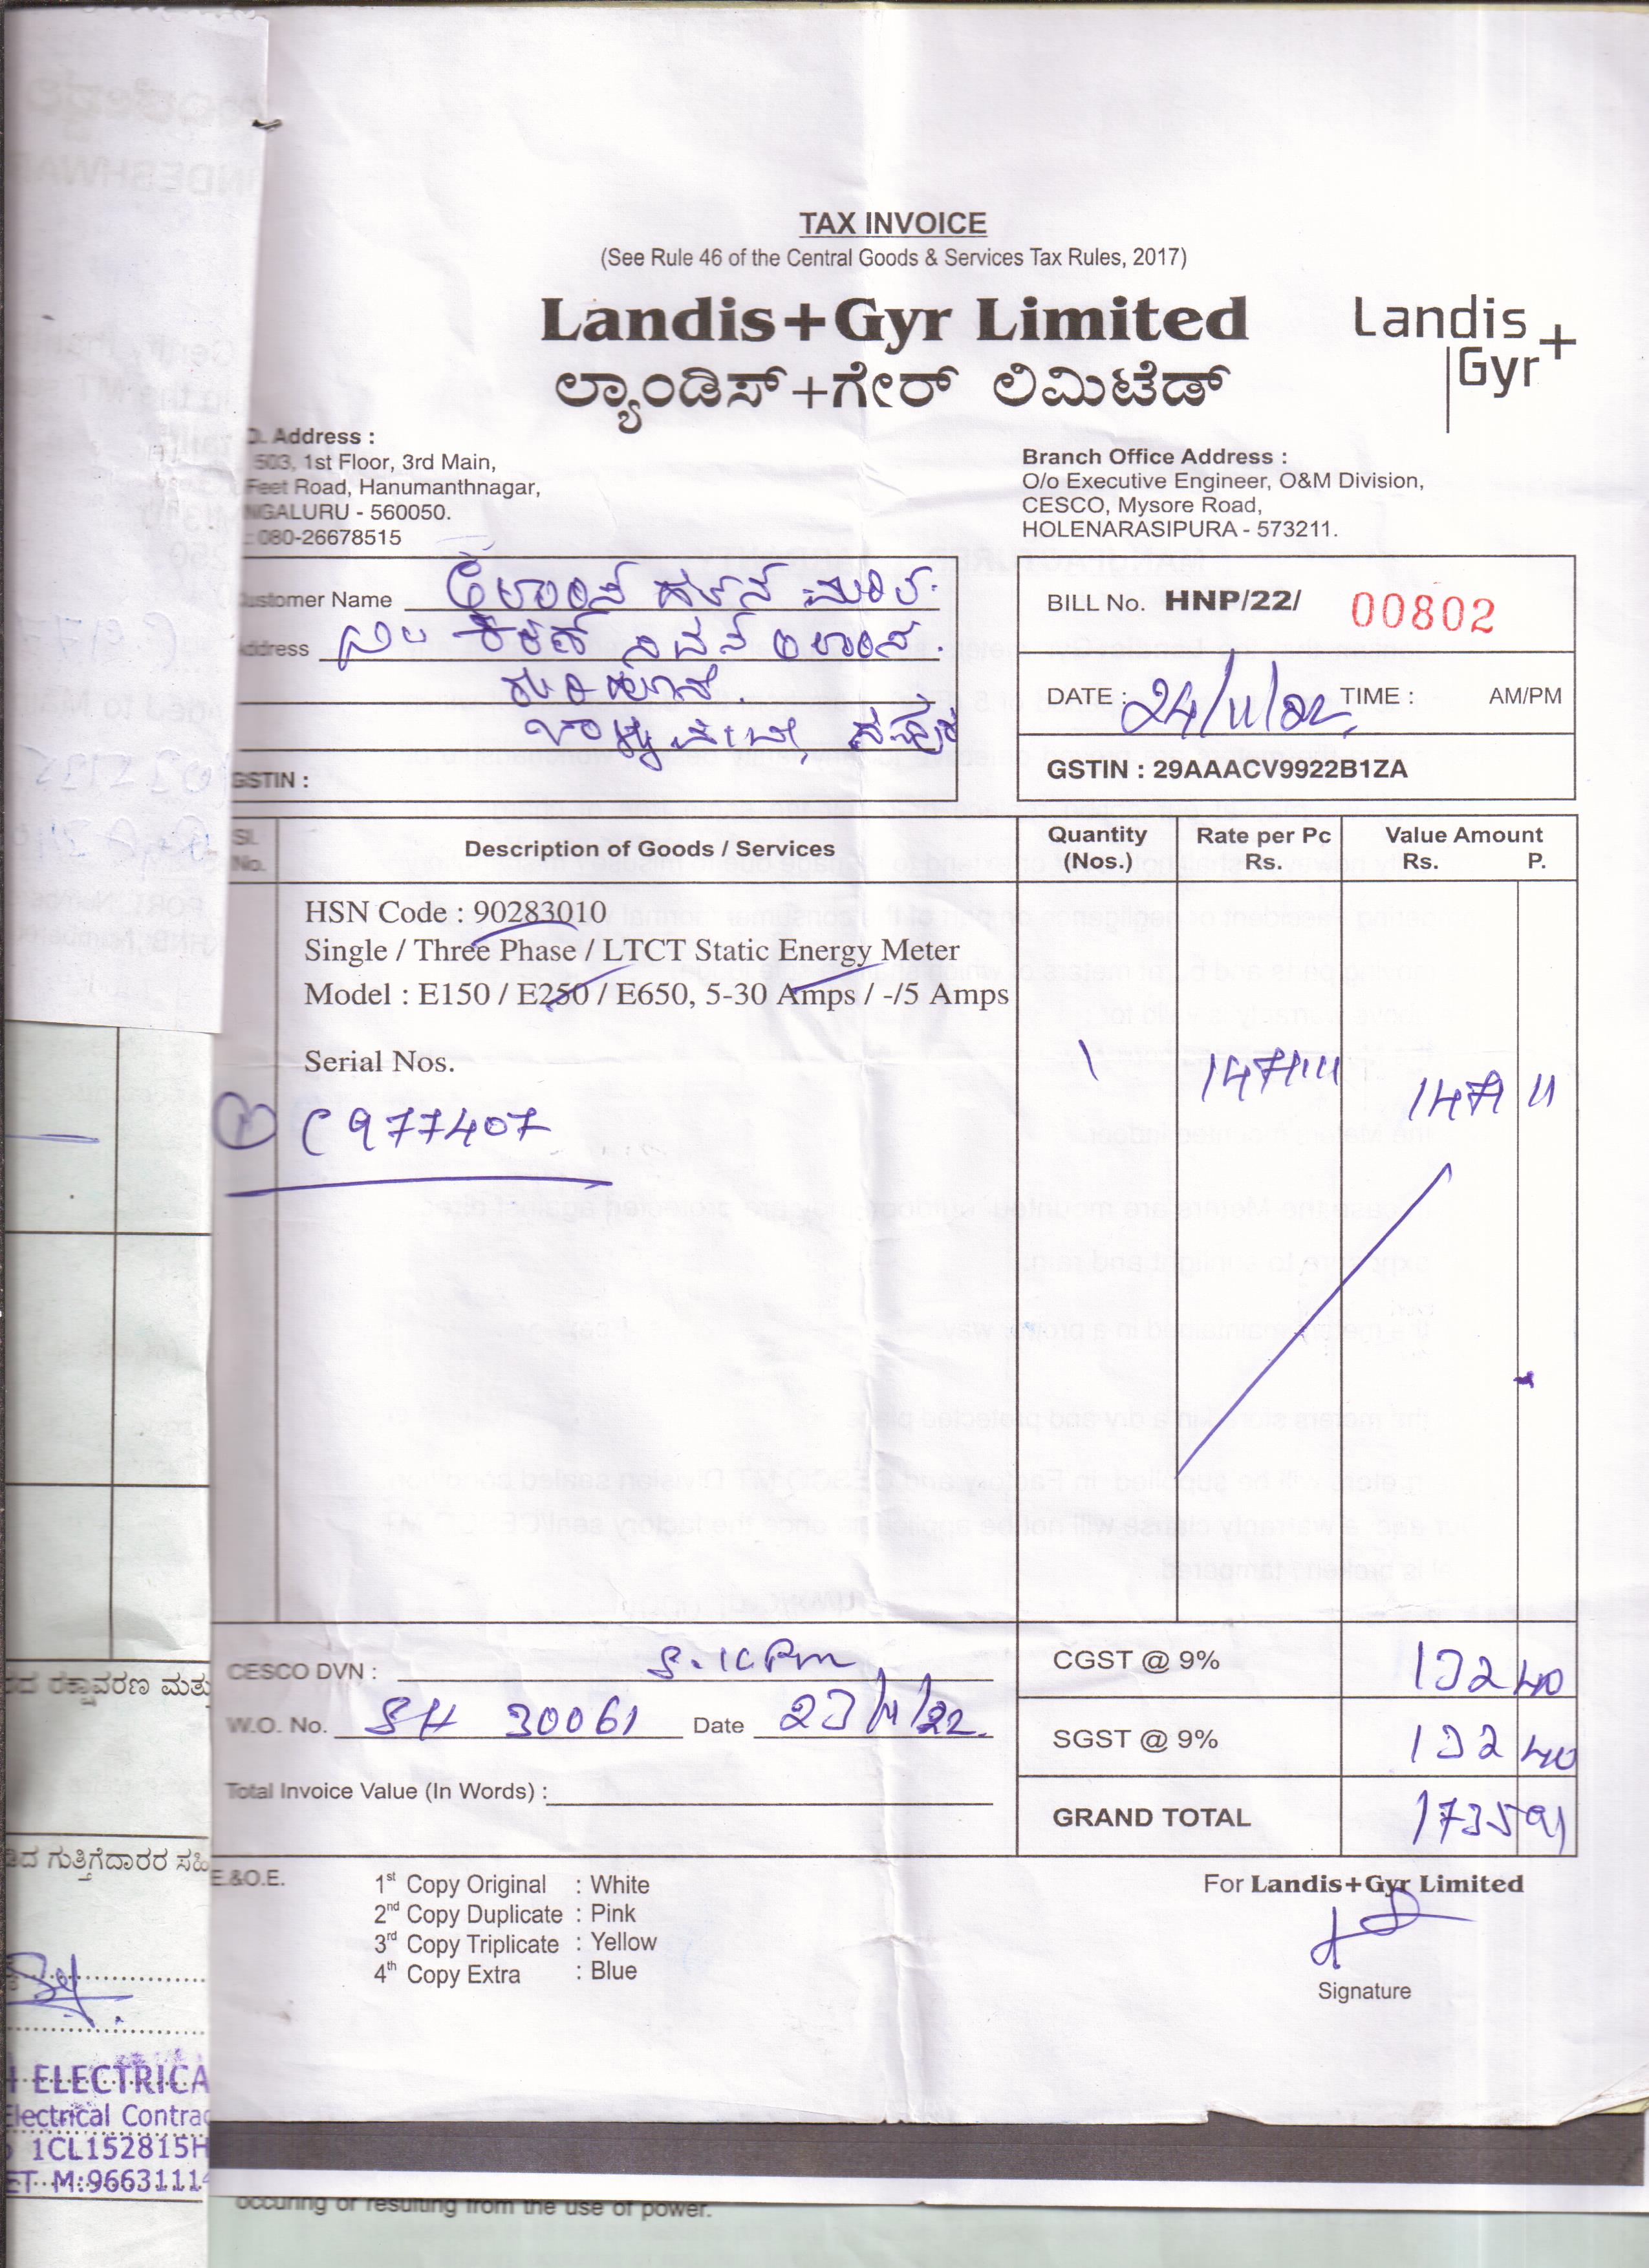 TAX INVOICE
(See Rule 46 of the Central Goods & Services Tax Rules, 2017)
Landis+Gyr Limited
ಲ್ಯಾಂಡಿಸ್+ಗೇರ್ ಲಿಮಿಟೆಡ್
Landis
Gyr+
Address :
503, 1st Floor, 3rd Main,
Feet Road, Hanumanthnagar,
NGALURU - 560050.
: 080-26678515
Branch Office Address :
O/o Executive Engineer, O&M Division,
CESCO, Mysore Road,
HOLENARASIPURA - 573211.
ustomer Name
ddress
GSTIN :
BILL No. HNP/22/ 00802
DATE : 24/11/22 TIME : AM/PM
GSTIN : 29AAACV9922B1ZA
Sl. No. Description of Goods / Services Quantity (Nos.) Rate per Pc Rs. Value Amount Rs. P.
HSN Code : 90283010
Single / Three Phase / LTCT Static Energy Meter
Model : E150 / E250 / E650, 5-30 Amps / -/5 Amps
Serial Nos.
1 1471.11 1471 11
C977407
CESCO DVN :
W.O. No. SH 30061 Date 23/11/22
Total Invoice Value (In Words) :
CGST @ 9% 132 40
SGST @ 9% 132 40
GRAND TOTAL 1735 91
E.&O.E.
1st Copy Original : White
2nd Copy Duplicate : Pink
3rd Copy Triplicate : Yellow
4th Copy Extra : Blue
For Landis+Gyr Limited
Signature
ರಕ್ಷಾವರಣ ಮತ್ತು
ಗುತ್ತಿಗೆದಾರರ ಸಹಿ
ELECTRICA
Electrical Contrac
1CL152815H
ET M:96631114
occuring or resulting from the use of power.